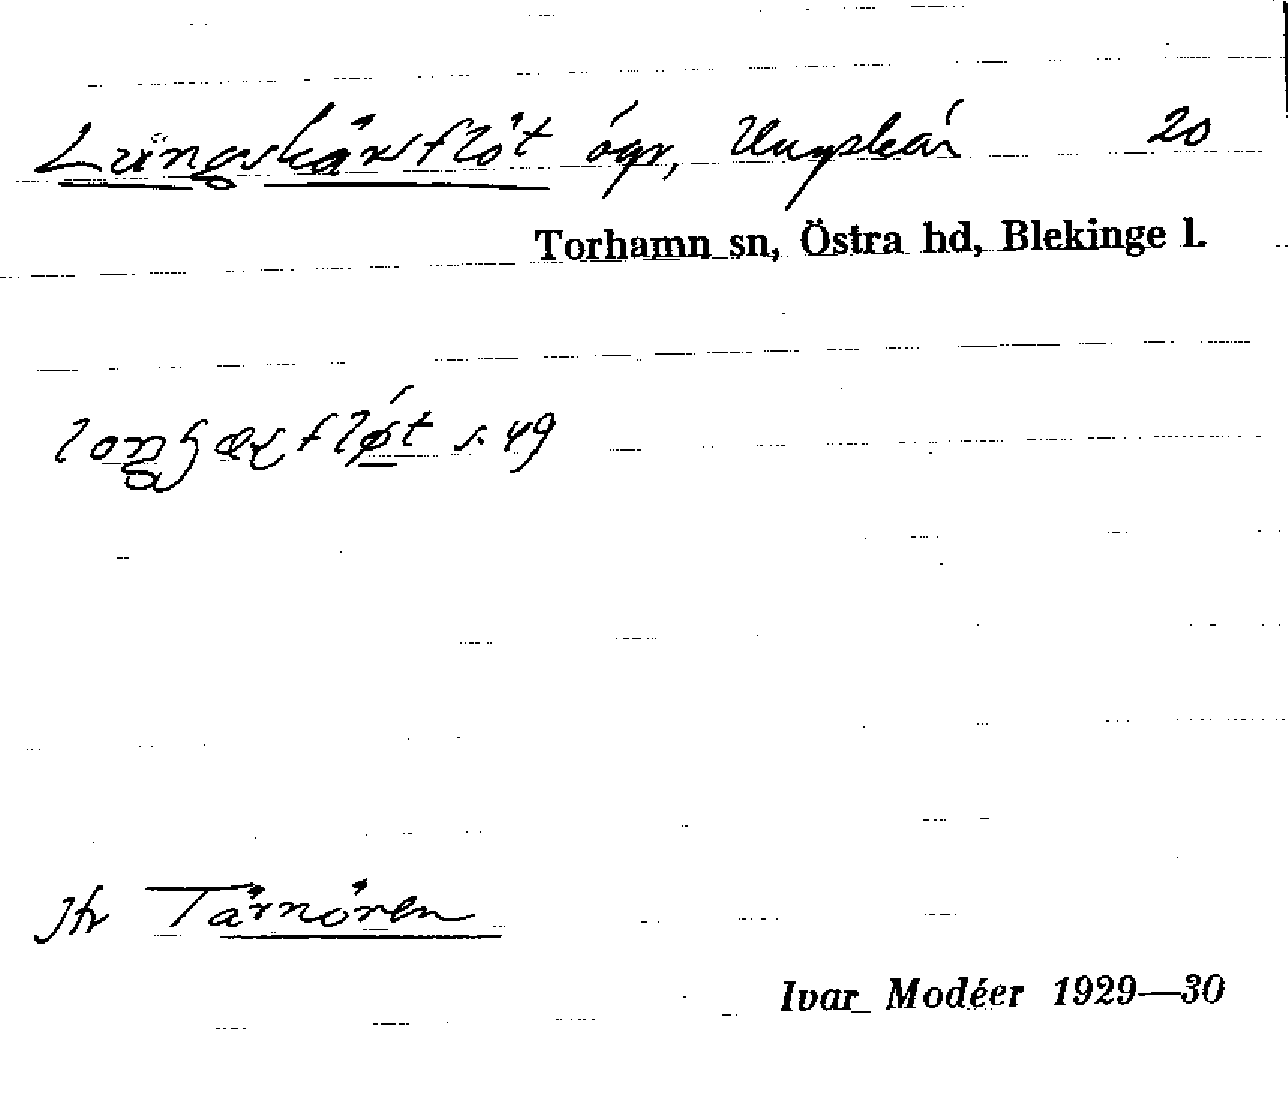 Lüngskärsflöt ögr, Ungskär 20
Torhamn sn, Östra hd, Blekinge l.
s. 49
Jfr Tärnören
Ivar Modéer 1929—30